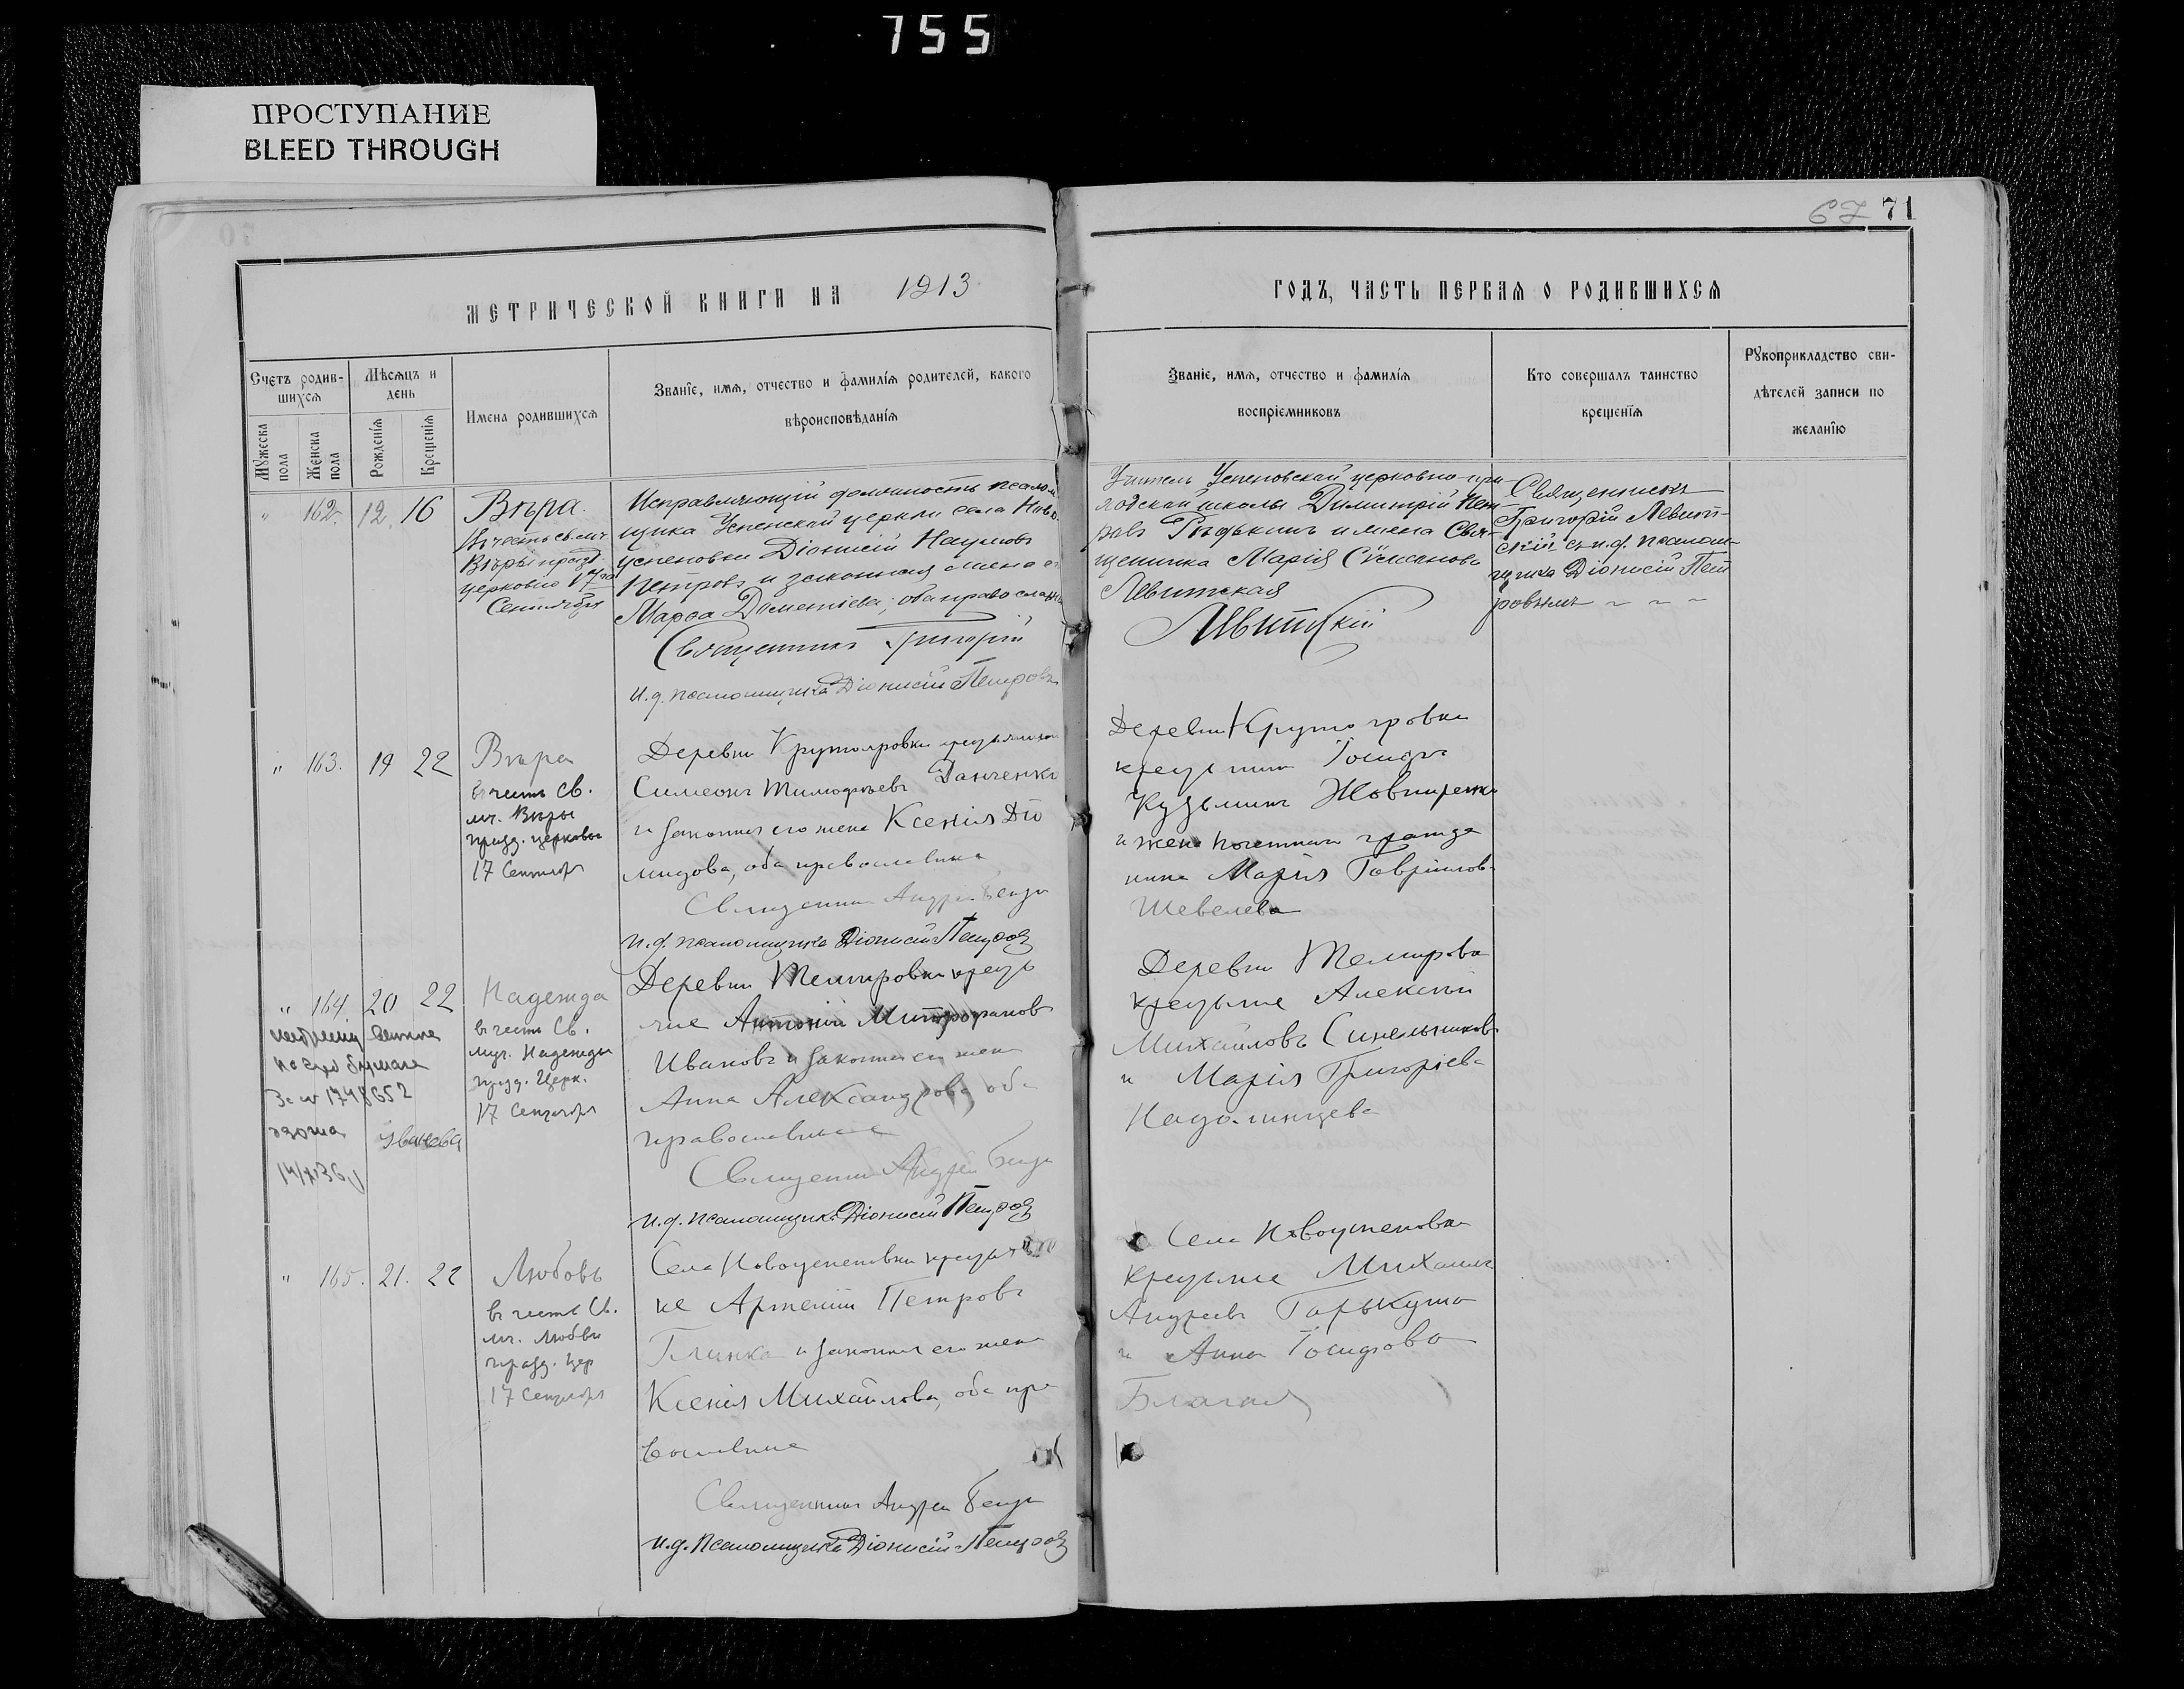 755
ПРОСТУПАНИЕ
BLEED THROUGH
67 71
МЕТРИЧЕСКОЙ КНИГИ НА 1913
ГОДЪ, ЧАСТЬ ПЕРВАЯ О РОДИВШИХСЯ
Счетъ родив-
шихся
Мужеска пола
Женска пола
Мѣсяцъ и
день
Рожденія
Крещенія
Имена родившихся
Званіе, имя, отчество и фамилія родителей, какого
вѣроисповѣданія
Званіе, имя, отчество и фамилія
воспріемниковъ
Кто совершалъ таинство
крещенія
Рукоприкладство сви-
дѣтелей записи по
желанію
" 162. 12. 16
Вѣра.
Въ честь св. мч.
Вѣры празд.
церковію 17го
Сентября
Исправляющій должность псалом
щика Успенской церкви села Ново-
успеновки Діонисій Наумовъ
Петровъ и законная жена его
Марѳа Дометіева; оба православн
Священникъ Григорій
и.д. псаломщика Діонисій Петровъ
Учитель Успеновской церковно-при
ходской школы Димитрій Пет
ровъ Рѣдькинъ и жена Свя-
щенника Марія
Левитская
Левитскій
Священникъ
Григорій Левит-
скій съ и.д. псалом-
щика Діонисій Пет
ровымъ
" 163. 19 22
Вѣра
въ честь Св.
мч. Вѣры
празд. церковью
17 Сентября
Деревни Крутояровки крестьянинъ
Симеонъ Тимоѳеевъ Данченко
и законная его жена Ксенія Діо
мидова, оба православные
Священникъ Андрей
и.д. псаломщика Діонисій Петровъ
Деревни Крутояровки
крестьянинъ Іосифъ
Кузьминъ Жовниренко
и жена почетнаго гражда
нина Марія Гавріилова
Шевелева
" 164. 20 22
Надежда
въ честь Св.
муч. Надежды
празд. Церк.
17 Сентября
по гербо бумаге
За № 1748652
Иванова
Деревни Темировки кресть
яне Антоній Митрофановъ
Ивановъ и законная его жена
Анна Александрова, оба
православные
Священникъ Андрей
и.д. псаломщика Діонисій Петровъ
Деревни Темировки
крестьяне Алексѣй
Михайловъ Синельниковъ
и Марія Григоріева
" 165. 21. 22
Любовь
въ честь Св.
мч. Любви
празд. Цер
17 Сентября
Села Новоуспеновки крестья
не Арсеній Петровъ
Глинка и законная его жена
Ксенія Михайлова, оба пра
вославные
Священникъ Андрей
и.д. Псаломщика Діонисій Петровъ
Села Новоуспеновки
крестьяне Михаилъ
Андреевъ Горькуша
и Анна Іосифова